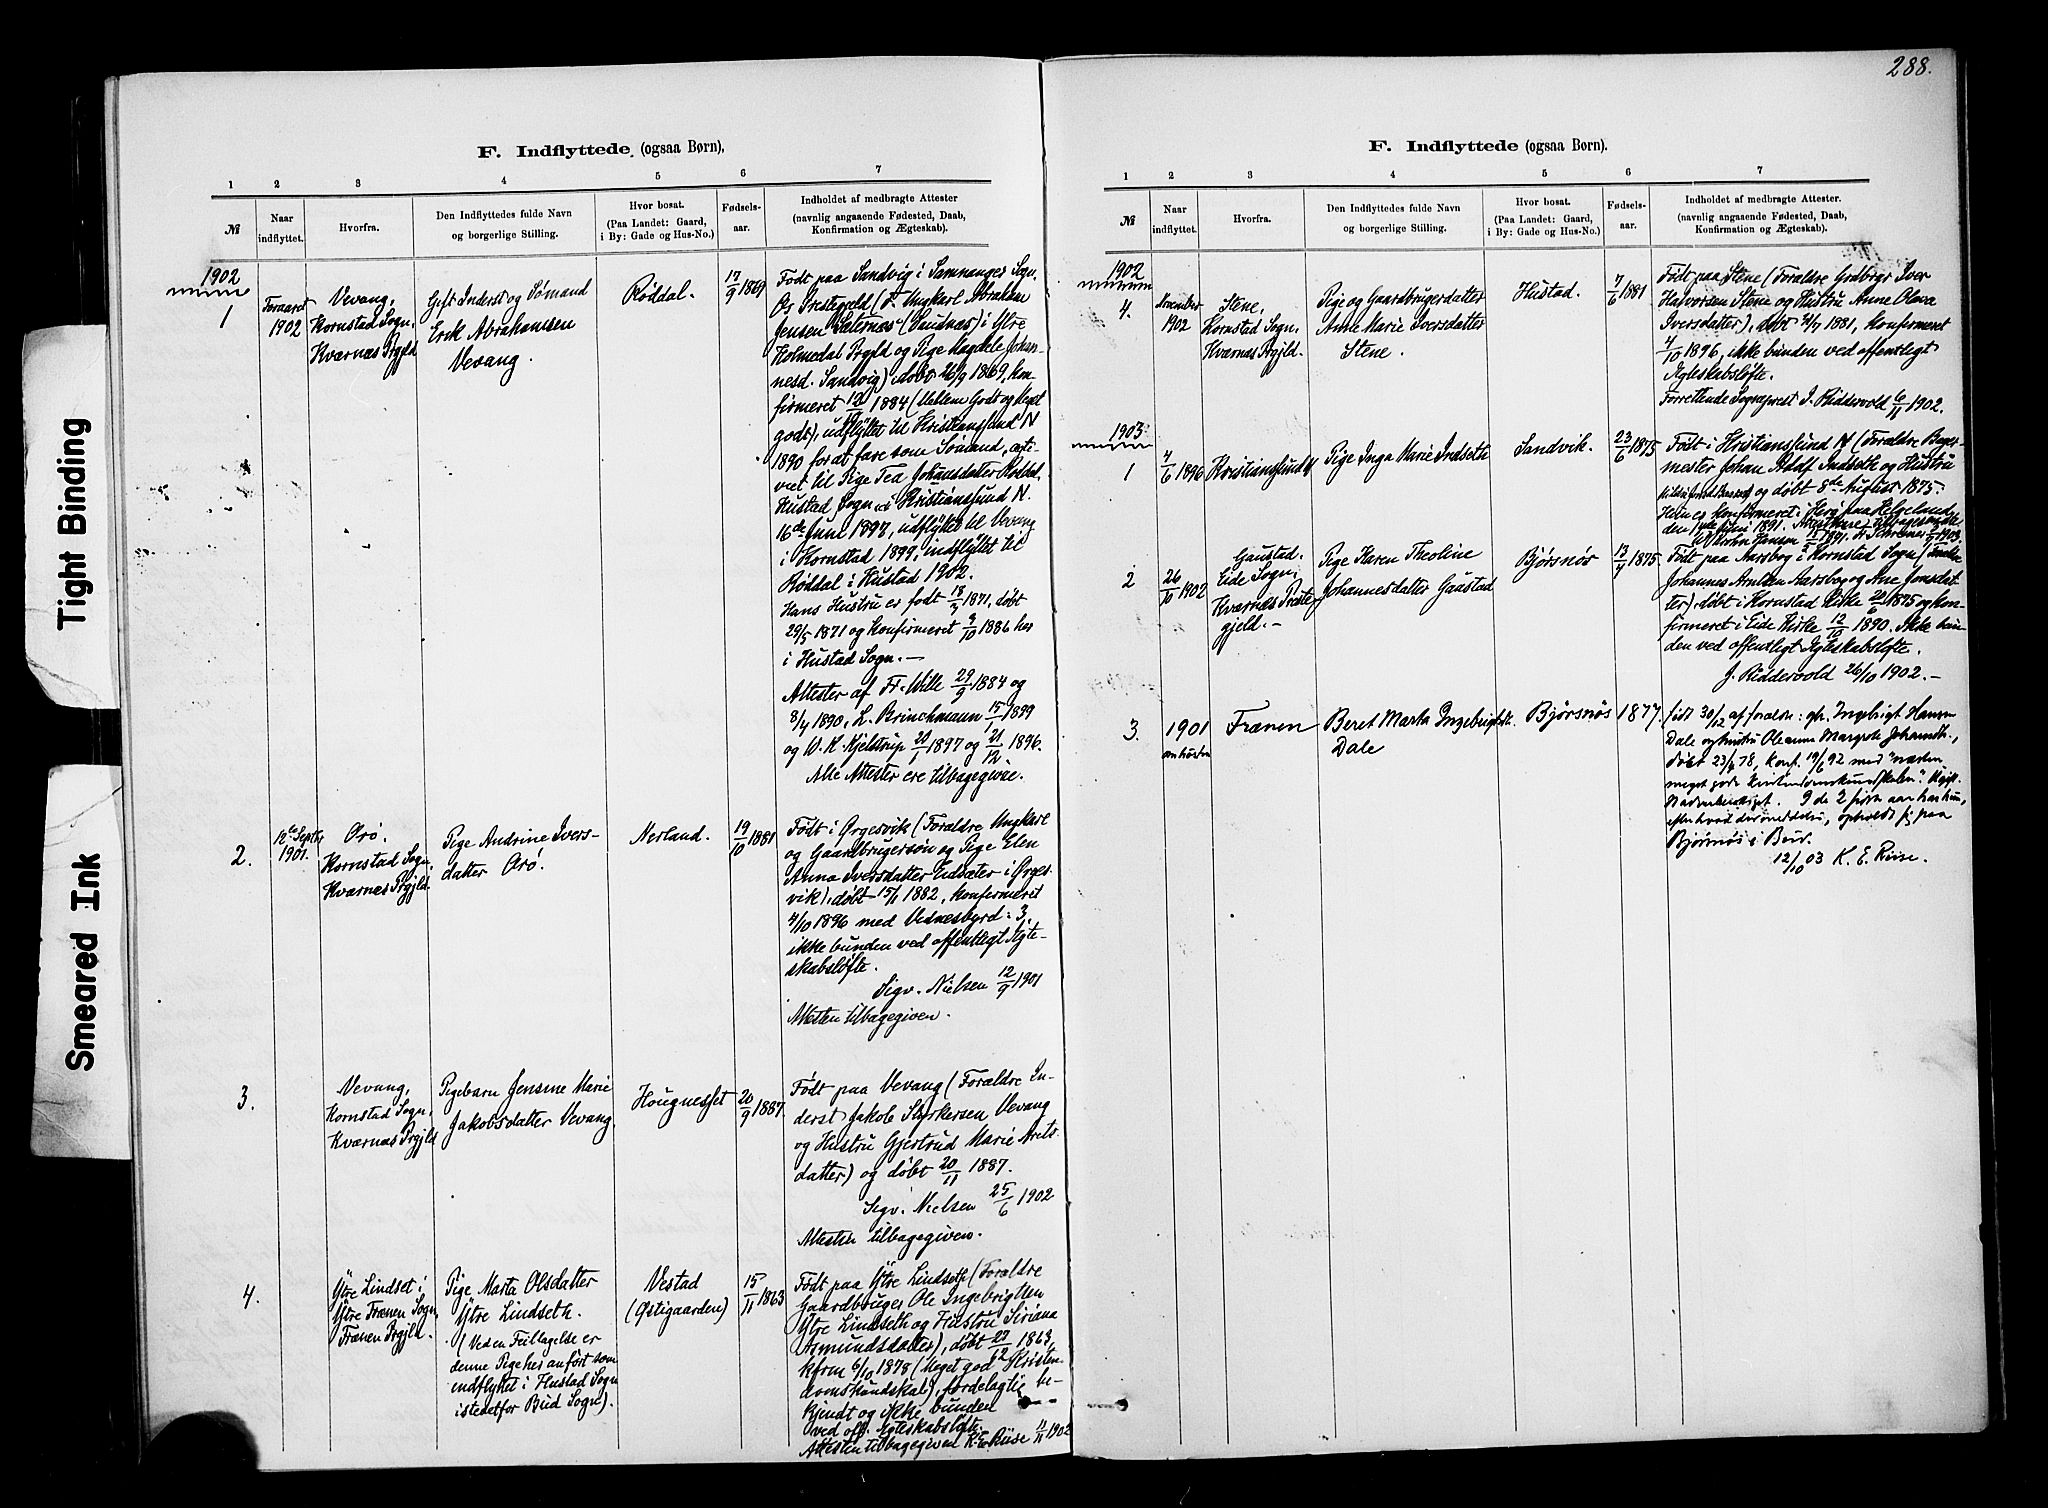 Tight Binding
Smeared Ink
F. Indflyttede (ogsaa Børn).
1 2 3 4 5 6 7
№
Naar indflyttet.
Hvorfra.
Den Indflyttedes fulde Navn og borgerlige Stilling.
Hvor bosat. (Paa Landet: Gaard, i By: Gade og Hus-No.)
Fødsels-aar.
Indholdet af medbragte Attester (navnlig angaaende Fødested, Daab, Konfirmation og Ægteskab).
1902
1
Foraaret
1902
Vevang,
Kornstad Sogn,
Kværnæs Prgjld
Gift Inderst og Sømand
Erik Abrahamsen
Vevang.
Røddal.
17/9 1869
Født paa Sandvig i Samnanger Sogn,
Os Prestegjeld (F. Ungkarl Abraham
Jensen Sæternæs (Saudnæs) i Ytre
Holmedal Prgjld og Pige Magdele Johan-
nesd. Sandvig) døbt 26/9 1869, kon-
firmeret 1884 (Mellem Godt og Meget
godt), udflyttet til Kristiansund N
1890 for at fare som Sømand, ægte-
viet til Pige Tea Johansdatter Røddal,
Hustad Sogn i Kristianssund N.
16de Juni 1897, udflyttet til Vevang
i Kornstad 1899, indflyttet til
Røddal i Hustad 1902.
Hans Hustru er født 1871, døbt
29/5 1871 og konfirmeret 1886 her
i Hustad Sogn.—
Attester af Fr. Wille 29/9 1884 og
8/4 1890, L. Brinchmann 15/1 1899
og W. K. Kjelstrup 20/1 1897 og 21/12 1896.
Alle Attester ere tilbagegivne.
2.
12te Septbr
1901.
Orø.
Kornstad Sogn,
Kværnæs Prgjld.
Pige Andrine Ivers-
datter Orø.
Nerland.
19/10 1881
Født i Ørgesvik (Forældre Ungkarl
og Gaardbrugersøn og Pige Elen
Anna Iversdatter Eidsæter i Ørges-
vik), døbt 15/1 1882, konfirmeret
4/10 1896 med Vidnesbyrd: 3,
ikke bunden ved offentligt Ægte-
skabsløfte.
Sigv. Nielsen 12/9 1901
Attesten tilbagegiven.
3.
Vevang,
Kornstad Sogn,
Kværnæs Prgjld
Pigebarn Jensine Marie
Jakobsdatter Vevang.
Hougnesset
20/9 1887.
Født paa Vevang (Forældre In-
derst Jakob Styrkersen Vevang
og Hustru Gjertrud Marie Arets-
datter) og døbt 20/11 1887.
Sigv. Nielsen 25/6 1902
Attesten tilbagegiven.
4.
Ytre Lindset i
Ytre Frænen Sogn,
Frænen Prgjld.
Pige Marta Olsdatter
Ytre Lindseth.
(Ved en Feiltagelse er
denne Pige her anført som
indflyttet i Hustad Sogn
istedetfor Bud Sogn).
Vestad
(Østigaarden)
15/11 1863
Født paa Ytre Lindseth (Forældre
Gaardbruger Ole Ingebrigtsen
Ytre Lindseth og Hustru Siriana
Asmundsdatter), døbt 27/12 1863,
kfrm 6/10 1878 (Meget god Kristen-
domskundskab), fordelagtig be-
kjendt og ikke bunden
ved off. Ægteskabsløfte.
Attesten tilbagegiven K. E. Riise 11/11 1902
288.
F. Indflyttede (ogsaa Børn).
1 2 3 4 5 6 7
№
Naar indflyttet.
Hvorfra.
Den Indflyttedes fulde Navn og borgerlige Stilling.
Hvor bosat. (Paa Landet: Gaard, i By: Gade og Hus-No.)
Fødsels-aar.
Indholdet af medbragte Attester. (navnlig angaaende Fødested, Daab, Konfirmation og Ægteskab).
1902
4.
November
1902
Stene,
Kornstad Sogn,
Kværnæs Prgjld.
Pige og Gaardbrugerdatter
Anne Marie Iversdatter
Stene.
Hustad.
7/6 1881
Født paa Stene (Forældre Grdbrgr Iver
Halvorsen Stene og Hustru Anne Olava
Iversdatter), døbt 21/7 1881, konfirmeret
4/10 1896, ikke bunden ved offentligt
Ægteskabsløfte.
Forrettende Sogneprest J. Riddervold 6/11 1902.
1903.
1
4/6 1896
Kristianssund N
Pige Inga Marie Indseth
Sandvik.
23/6 1875
Født i Kristianssund N (Forældre Bager-
mester Johan Adolf Indseth og Hustru
og døbt 8de August 1875:
Hun er konfirmeret i Herø paa Helgeland
den Juni 1891.
2
26/10 1902
Gaustad.
Eide Sogn,
Kværnæs Præste-
gjeld.—
Pige Karen Theoline
Johannesdatter Gaustad
Bjørsnøs
13/4 1875.
Født paa Aarsbog i Kornstad Sogn (Forældre
Johannes Arntsen Aarsbog og Ane Jonsdat-
ter), døbt i Kornstad Kirke 20/6 1875 og kon-
firmeret i Eide Kirke 12/10 1890. Ikke bun-
den ved offentligt Ægteskabsløfte.
J. Riddervold 26/10 1902.—
3.
1901
Frænen
Beret Marta Ingebrigtsdt.
Dale
Bjørsnøs
1877.
født 30/12 af foreldre: gbr. Ingebrigt Hansen
Dale og hustru Oleanna Margrete Johansdt.,
døbt 23/4 78, konf. 19/6 92 med "næsten
meget gode kristendomskundskaber". Ugift.
De 2 første aar har hun,
efter hvad der meddeles, opholdt sig paa
Bjørsnøs i Bud.
12/10 03 K. E. Riise.